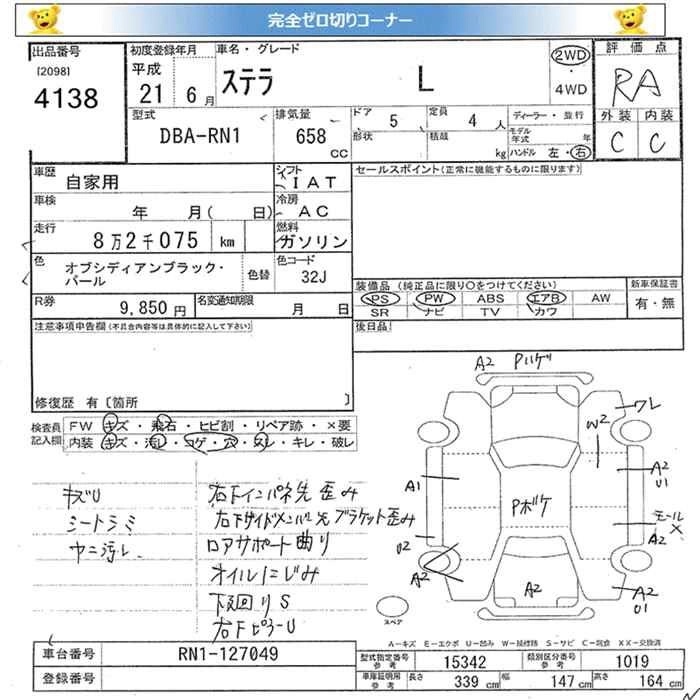 完全ゼロ切りコーナー
出品番号
[2098]
4138
初度登録年月
平成
21 6月
車名・グレード
ステラ L
2WD
・
4WD
評価点
RA
外装 内装
C C
型式
DBA-RN1
排気量
658
CC
ドア 5
定員 4 人
形状
積載 kg
ディーラー・並行
モデル年式 年
ハンドル 左・右
車歴
自家用
シフト
IAT
車検
年 月( 日)
冷房
AC
走行
8万2千075 km
燃料
ガソリン
色
オブシディアンブラック・
パール
色替
色コード
32J
R券
9,850 円
名変通知期限
月 日
セールスポイント(正常に機能するものに限ります)
装備品 (純正品に限り○をつけてください)
PS PW ABS エアB AW
SR ナビ TV カワ
新車保証書
有・無
後日品
注意事項申告欄(不具合内容等は具体的に記入して下さい)
修復歴 有 [箇所 ]
検査員
記入欄
FW キズ・飛石・ヒビ割・リペア跡・×要
内装 キズ・汚レ・コゲ・穴・スレ・キレ・破レ
キズU
シートシミ
ヤニ汚レ
右下インパネ先歪み
右下サイドメンバー先ブラケット歪み
ロアサポート曲り
オイルにじみ
下回りS
右下ピラーU
A2 Pハゲ
ワレ
W2
A1
A2
U1
Pボケ
モール
×
A2
U2
A2
A2
A2
U1
スペア
A−キズ E−エクボ U−凹み W−補修跡 S−サビ C−腐食 XX−交換済
車台番号 RN1-127049
登録番号
型式指定番号
参考
15342
類別区分番号
参考
1019
車庫証明用
参考
長さ 339 cm 幅 147 cm 高さ 164 cm